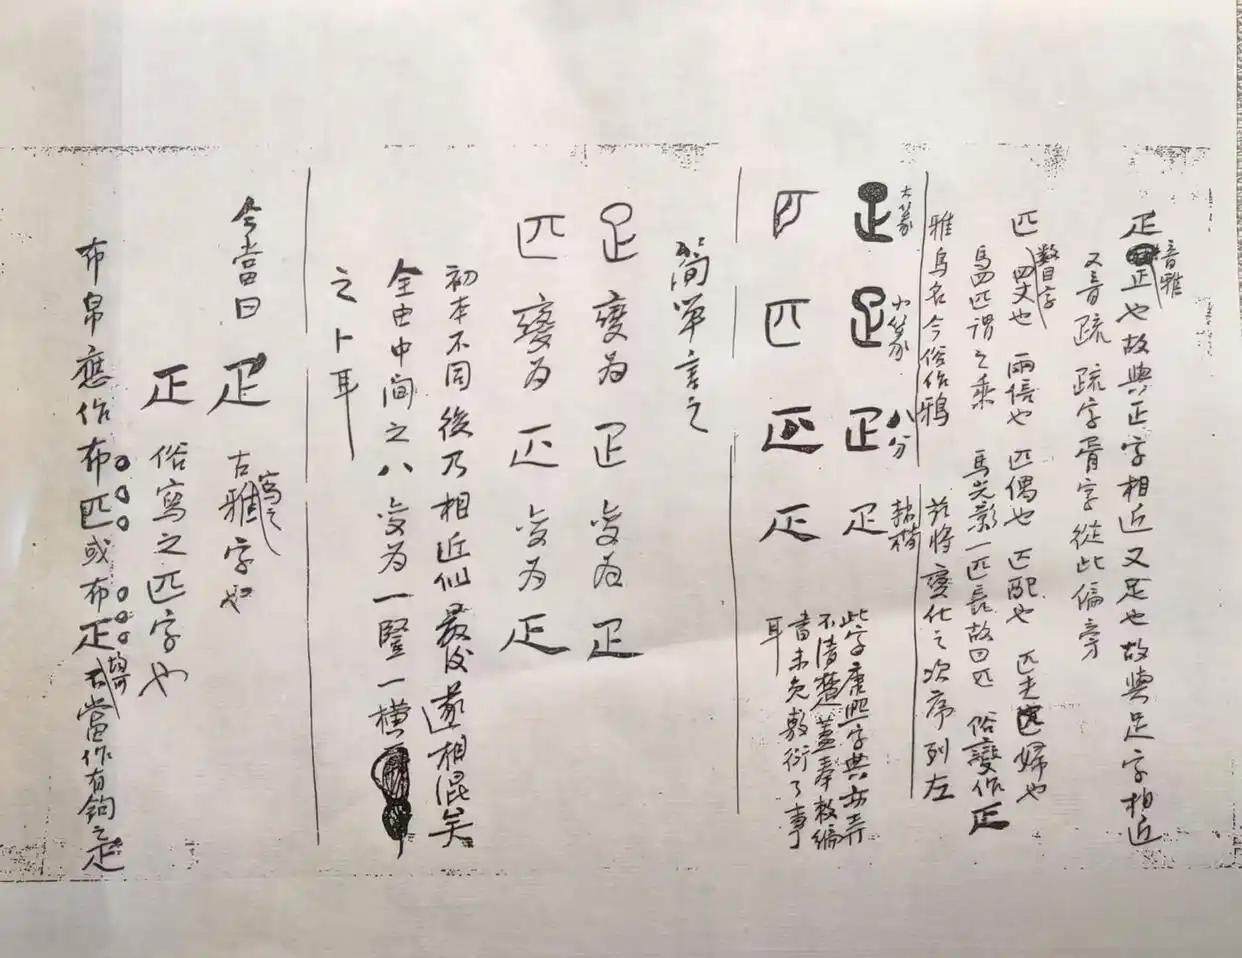 疋 音雅 正也故與正字相近又足也故與足字相近
又音疏 疏字胥字從此偏旁
匹 數字 四丈也 兩倍也 匹偶也 匹配也 匹夫匹婦也
馬四匹謂之乘 馬光景一匹長故曰匹 俗變作疋
雅鳥名今俗作鴉 茲將變化之次序列左
大篆 小篆 八分 楷
疋 疋
匹 匹 匹 疋
此字康熙字典亦弄
不清楚蓋奉敕編
書未免敷衍了事
耳
簡單言之
𤴓 變為 疋 變為 疋
匹 變為 匹 變為 疋
初本不同後乃相近似最後遂相混矣
全由中间之八變為一豎一橫
之卜耳
今當曰 疋 古雅字也 寫之
疋 俗寫之匹字也
布帛應作布匹或布疋 右當作有鉤之疋